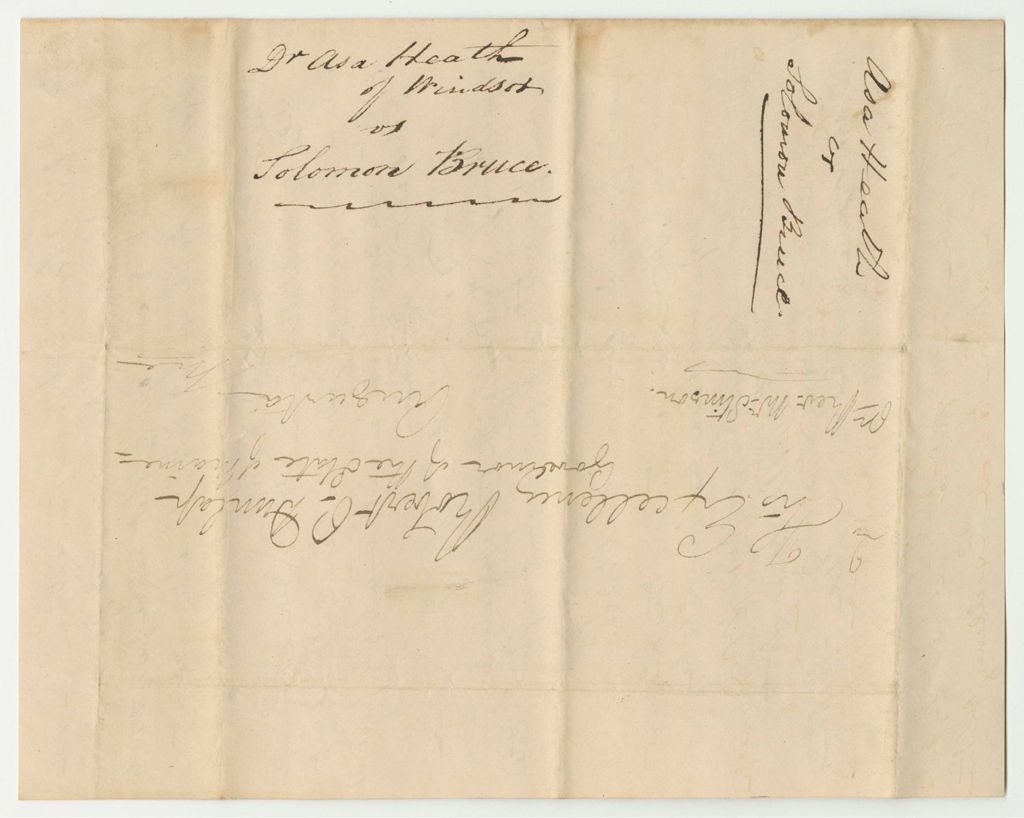 Dr Asa Heath
of Windsor
vs
Solomon Bruce.
Asa Heath
Solomon Bruce.
His Excellency Robert P. Dunlap
Governor of the State of Maine
Augusta
Me
Mr Stinson.